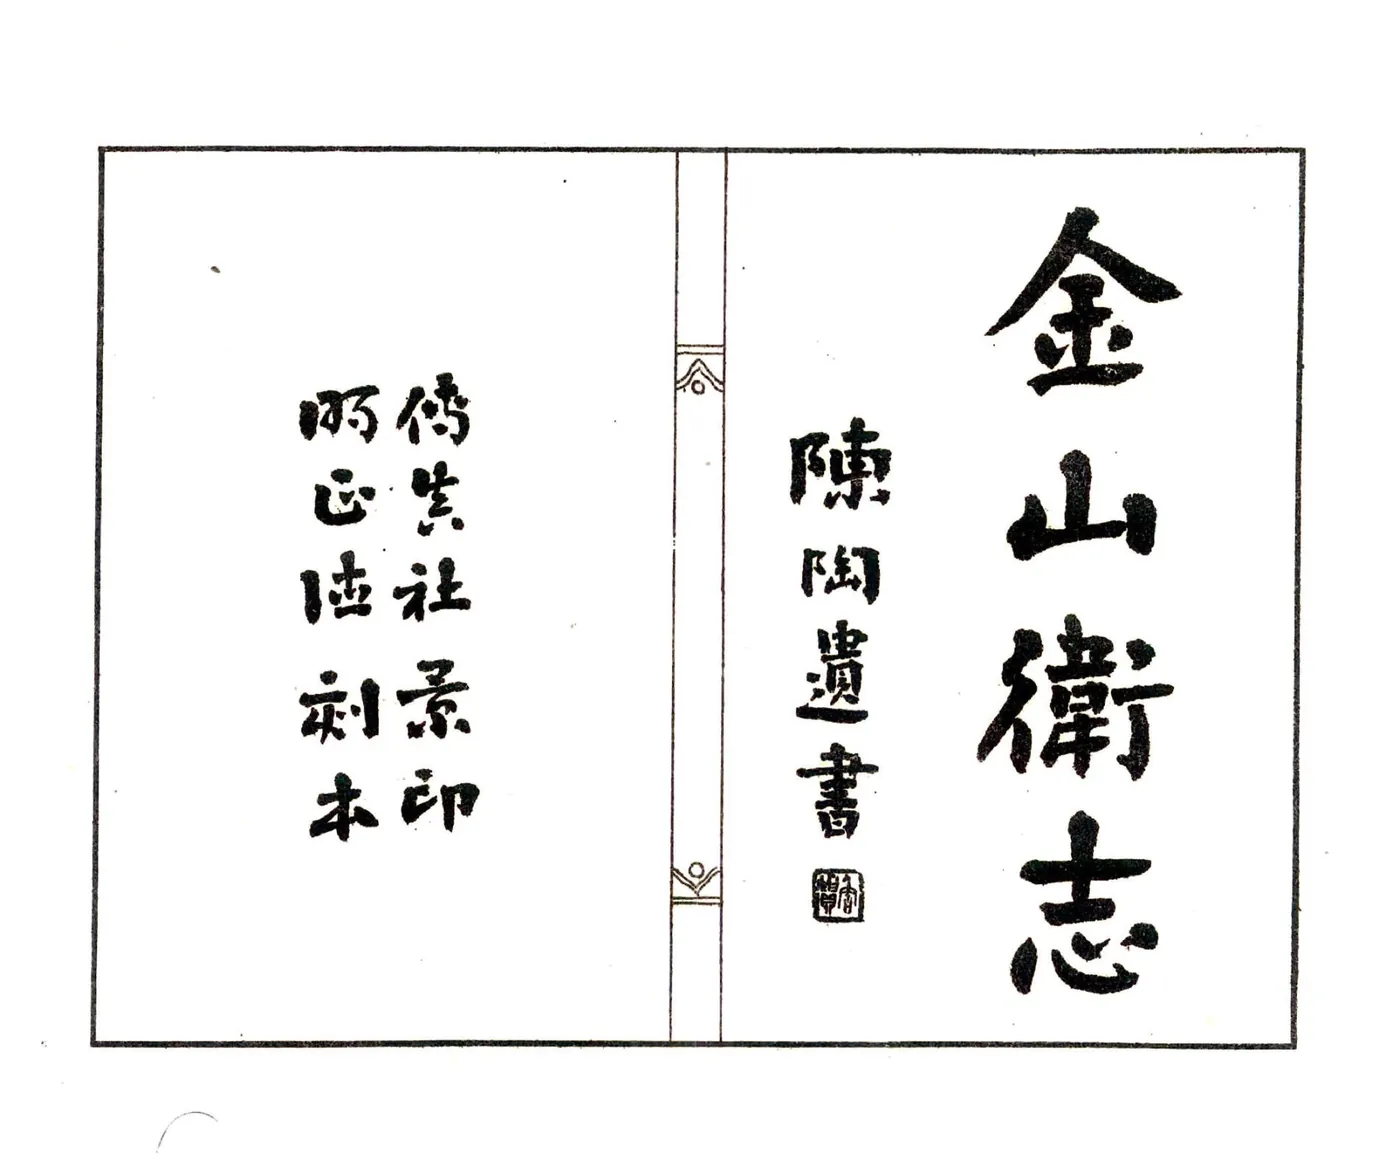 金山衛志
陳陶遺書
傳真社景印
明正德刻本